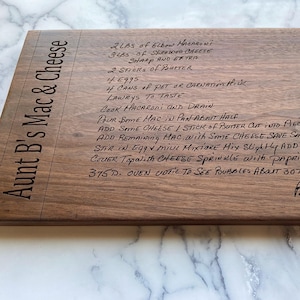 Aunt B's Mac & Cheese
2 LBS of Elbow Macaroni
3 LBS of Shredded Cheese
Sharp and Extra
2 Sticks of Butter
4 Eggs
4 Cans of Pet or Carnation Milk
Lawrys to Taste
Cook Macaroni and Drain
Pour Some Mac in Pan About Half
Add Some Cheese 1 Stick of Butter Cut into
Add Remaining Mac with Some Cheese Save Some
Stir in Eggs & Milk Mixture Mix Slightly Add
Top with Cheese Sprinkle with
375 D. Oven Until To See Bubbles About 30